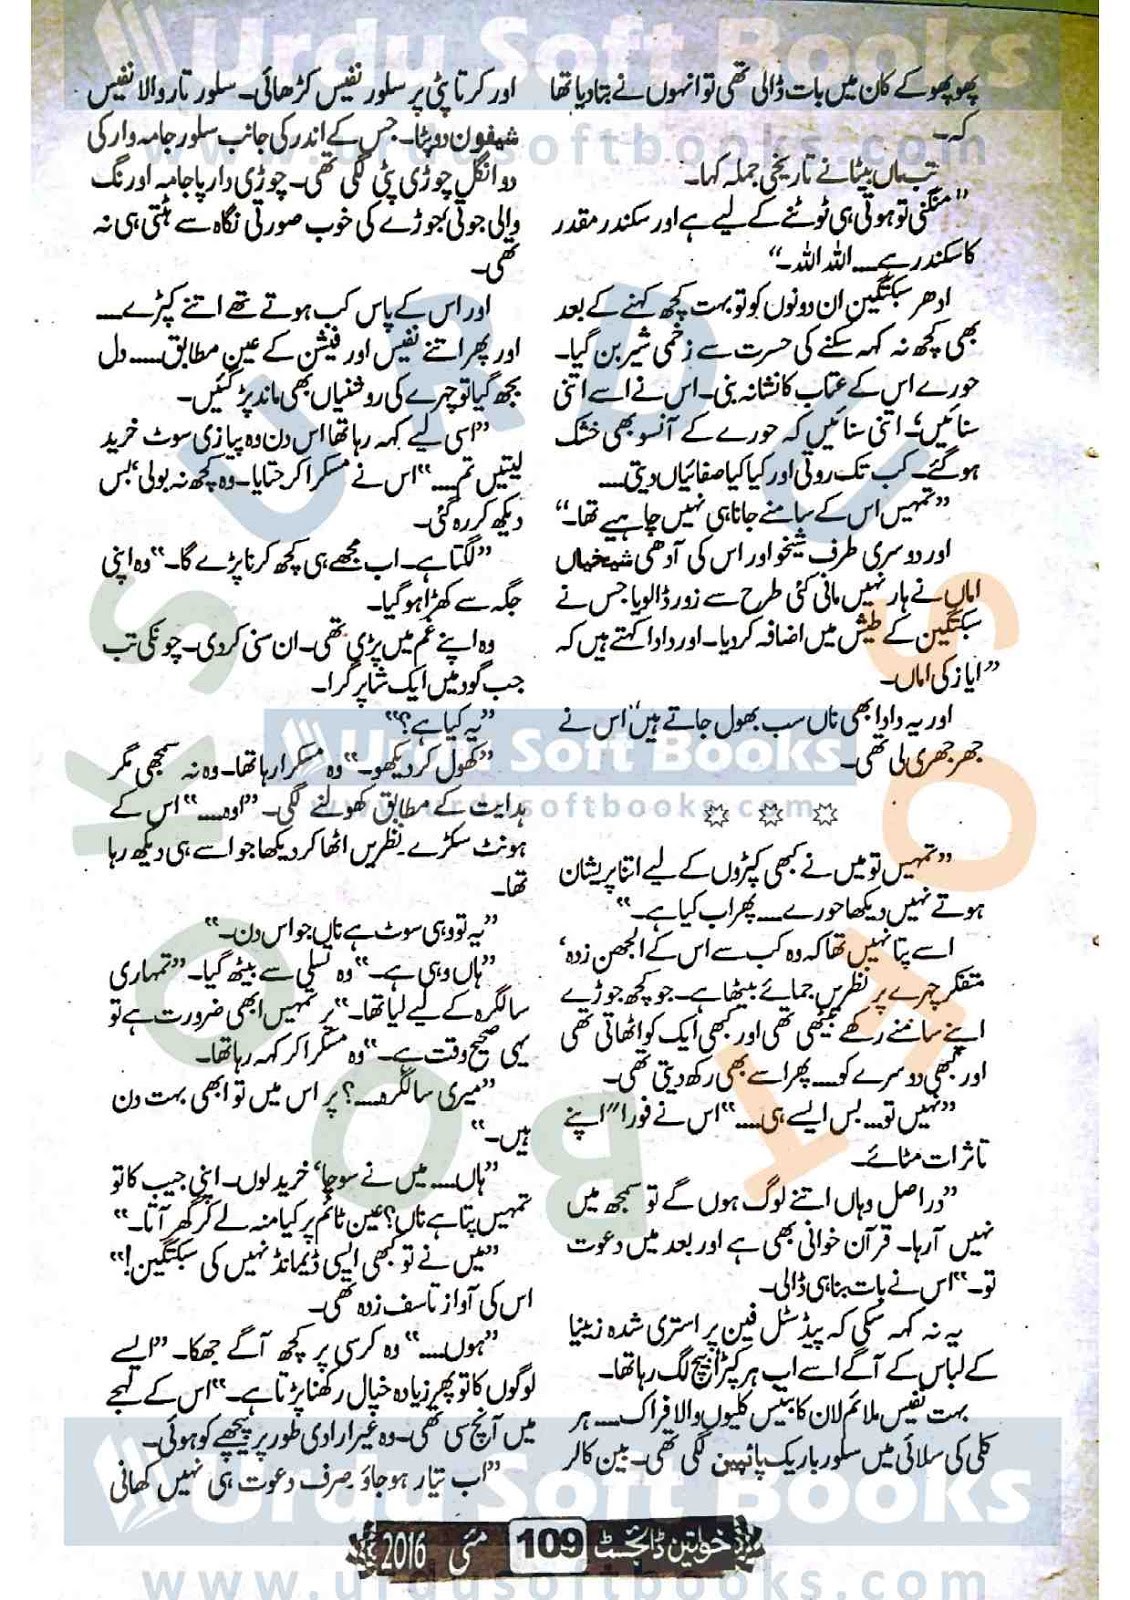 Urdu Soft Books
www.urdusoftbooks.com
پھوپھو کے کان میں بات ڈالی تھی تو انہوں نے بتا دیا تھا
کہ۔
تب ماں بیٹا نے تاریخی جملہ کہا۔
”منگنی تو ہوتی ہی ٹوٹنے کے لیے ہے اور سکندر مقدر
کا سکندر ہے.... اللہ اللہ۔“
ادھر سبکتگین ان دونوں کو تو بہت کچھ کہنے کے بعد
بھی کچھ نہ کہہ سکنے کی حسرت سے زخمی شیر بن گیا۔
حورے اس کے عتاب کا نشانہ بنی۔ اس نے اسے اتنی
سنائیں، اتنی سنائیں کہ حورے کے آنسو بھی خشک
ہو گئے۔ کب تک روتی اور کیا کیا صفائیاں دیتی....
”تمہیں اس کے سامنے جانا ہی نہیں چاہیے تھا۔“
اور دوسری طرف شیخو اور اس کی آدھی شیخیاں
اماں نے ہار نہیں مانی کئی طرح سے زور ڈالو یا جس نے
سبکتگین کے طیش میں اضافہ کر دیا۔ اور دادا کہتے ہیں کہ
”ایاز کی اماں۔
اور یہ دادا بھی ناں سب بھول جاتے ہیں“ اس نے
جھرجھری لی تھی۔
☼ ☼ ☼
”تمہیں تو میں نے کبھی کپڑوں کے لیے اتنا پریشان
ہوتے نہیں دیکھا حورے.... پھر اب کیا ہے۔“
اسے پتا نہیں تھا کہ وہ کب سے اس کے الجھن زدہ،
متفکر چہرے پر نظریں جمائے بیٹھا ہے۔ جو کچھ جوڑے
اپنے سامنے رکھے بیٹھی تھی اور کبھی ایک کو اٹھاتی تھی
اور کبھی دوسرے کو.... پھر اسے بھی رکھ دیتی تھی۔
”نہیں تو... بس ایسے ہی....“ اس نے فوراً اپنے
تاثرات مٹائے۔
”دراصل وہاں اتنے لوگ ہوں گے تو سمجھ میں
نہیں آرہا۔ قرآن خوانی بھی ہے اور بعد میں دعوت
تو۔“ اس نے بات بنا ہی ڈالی۔
یہ نہ کہہ سکی کہ پیڈسٹل فین پر استری شدہ زینیا
کے لباس کے آگے اسے اب ہر کپڑا ہیچ لگ رہا تھا۔
بہت نفیس ملائم لان کا بتیس کلیوں والا فراک.... ہر
کلی کی سلائی میں سلور باریک پائپین لگی تھی۔ بین کالر
اور کرتا پٹی پر سلور نفیس کڑھائی۔ سلور تار والا نفیس
شیفون دوپٹا۔ جس کے اندر کی جانب سلور جامہ وار کی
دو انگل چوڑی پٹی لگی تھی۔ چوڑی دار پاجامہ اور نگ
والی جوتی، جوڑے کی خوب صورتی نگاہ سے ہٹتی ہی نہ
تھی۔
اور اس کے پاس کب ہوتے تھے اتنے کپڑے....
اور پھر اتنے نفیس اور فیشن کے عین مطابق.... دل
بجھ گیا تو چہرے کی روشنیاں بھی ماند پڑ گئیں۔
”اسی لیے کہہ رہا تھا اس دن وہ پیازی سوٹ خرید
لیتیں تم....“ اس نے مسکرا کر جتایا۔ وہ کچھ نہ بولی، بس
دیکھ کر رہ گئی۔
”لگتا ہے۔ اب مجھے ہی کچھ کرنا پڑے گا۔“ وہ اپنی
جگہ سے کھڑا ہو گیا۔
وہ اپنے غم میں پڑی تھی۔ ان سنی کر دی۔ چونکی تب
جب گود میں ایک شاپر گرا۔
”یہ کیا ہے؟“
”کھول کر دیکھو۔“ وہ مسکرا رہا تھا۔ وہ نہ سمجھی مگر
ہدایت کے مطابق کھولنے لگی۔ ”اوہ....“ اس کے
ہونٹ سکڑے۔ نظریں اٹھا کر دیکھا جو اسے ہی دیکھ رہا
تھا۔
”یہ تو وہی سوٹ ہے ناں جو اس دن۔“
”ہاں وہی ہے۔“ وہ تسلی سے بیٹھ گیا۔ ”تمہاری
سالگرہ کے لیے لیا تھا۔“ پر تمہیں ابھی ضرورت ہے تو
یہی صحیح وقت ہے۔“ وہ مسکرا کر کہہ رہا تھا۔
”میری سالگرہ....؟ پر اس میں تو ابھی بہت دن
ہیں۔“
”ہاں.... میں نے سوچا، خرید لوں۔ اپنی جیب کا تو
تمہیں پتا ہے ناں؟ عین ٹائم پر کیا منہ لے کر گھر آتا۔“
”میں نے تو کبھی ایسی ڈیمانڈ نہیں کی سبکتگین!“
اس کی آواز تاسف زدہ تھی۔
”ہوں....“ وہ کرسی پر کچھ آگے جھکا۔ ”ایسے
لوگوں کا تو پھر زیادہ خیال رکھنا پڑتا ہے۔“ اس کے لہجے
میں آنچ سی تھی۔ وہ غیر ارادی طور پر پیچھے کو ہوئی۔
”اب تیار ہو جاؤ۔ صرف دعوت ہی نہیں کھانی
URDU SOFT BOOKS
Urdu Soft Books
www.urdusoftbooks.com
Urdu Soft Books
خواتین ڈائجسٹ 109 مئی 2016
www.urdusoftbooks.com